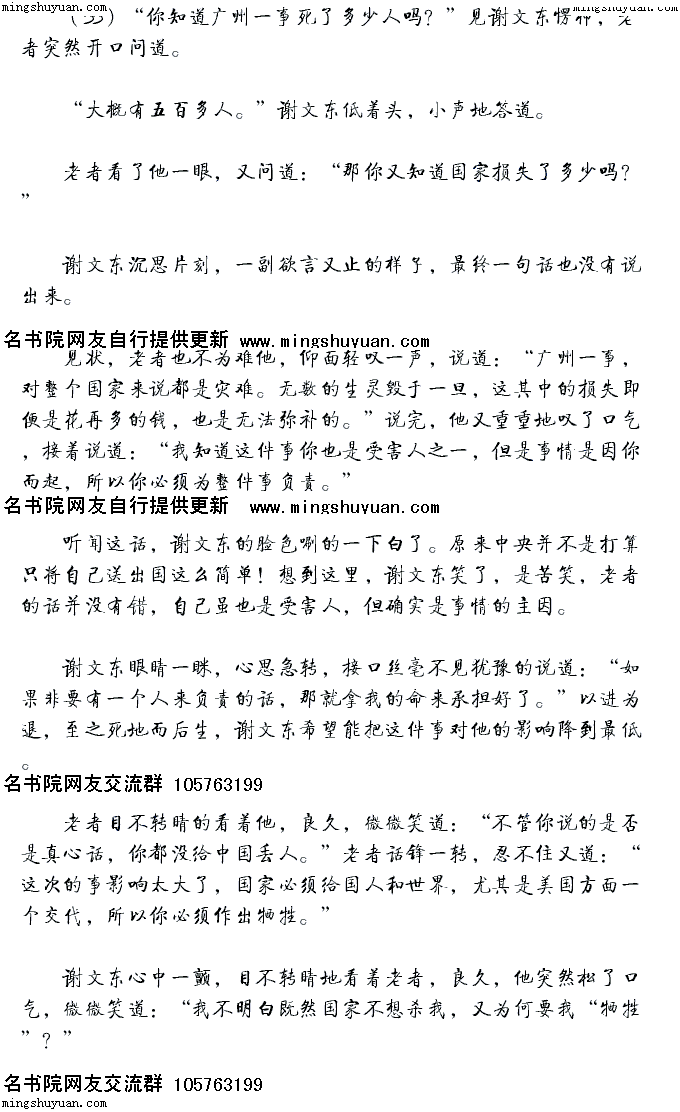 mingshuyuan.com mingshuyuan.com
（55）“你知道广州一事死了多少人吗？”见谢文东愣神，老
mingshuyuan.com mingshuyuan.com
者突然开口问道。
“大概有五百多人。”谢文东低着头，小声地答道。
老者看了他一眼，又问道：“那你又知道国家损失了多少吗？
”
谢文东沉思片刻，一副欲言又止的样子，最终一句话也没有说
出来。
名书院网友自行提供更新 www.mingshuyuan.com
见状，老者也不为难他，仰面轻叹一声，说道：“广州一事，
对整个国家来说都是灾难。无数的生灵毁于一旦，这其中的损失即
便是花再多的钱，也是无法弥补的。”说完，他又重重地叹了口气
，接着说道：“我知道这件事你也是受害人之一，但是事情是因你
而起，所以你必须为整件事负责。”
名书院网友自行提供更新 www.mingshuyuan.com
听闻这话，谢文东的脸色唰的一下白了。原来中央并不是打算
只将自己送出国这么简单！想到这里，谢文东笑了，是苦笑，老者
的话并没有错，自己虽也是受害人，但确实是事情的主因。
谢文东眼睛一眯，心思急转，接口丝毫不见犹豫的说道：“如
果非要有一个人来负责的话，那就拿我的命来承担好了。”以进为
退，至之死地而后生，谢文东希望能把这件事对他的影响降到最低
。
名书院网友交流群 105763199
老者目不转睛的看着他，良久，微微笑道：“不管你说的是否
是真心话，你都没给中国丢人。”老者话锋一转，忍不住又道：“
这次的事影响太大了，国家必须给国人和世界，尤其是美国方面一
个交代，所以你必须作出牺牲。”
谢文东心中一颤，目不转睛地看着老者，良久，他突然松了口
气，微微笑道：“我不明白既然国家不想杀我，又为何要我“牺牲
”？”
名书院网友交流群 105763199
mingshuyuan.com mingshuyuan.com